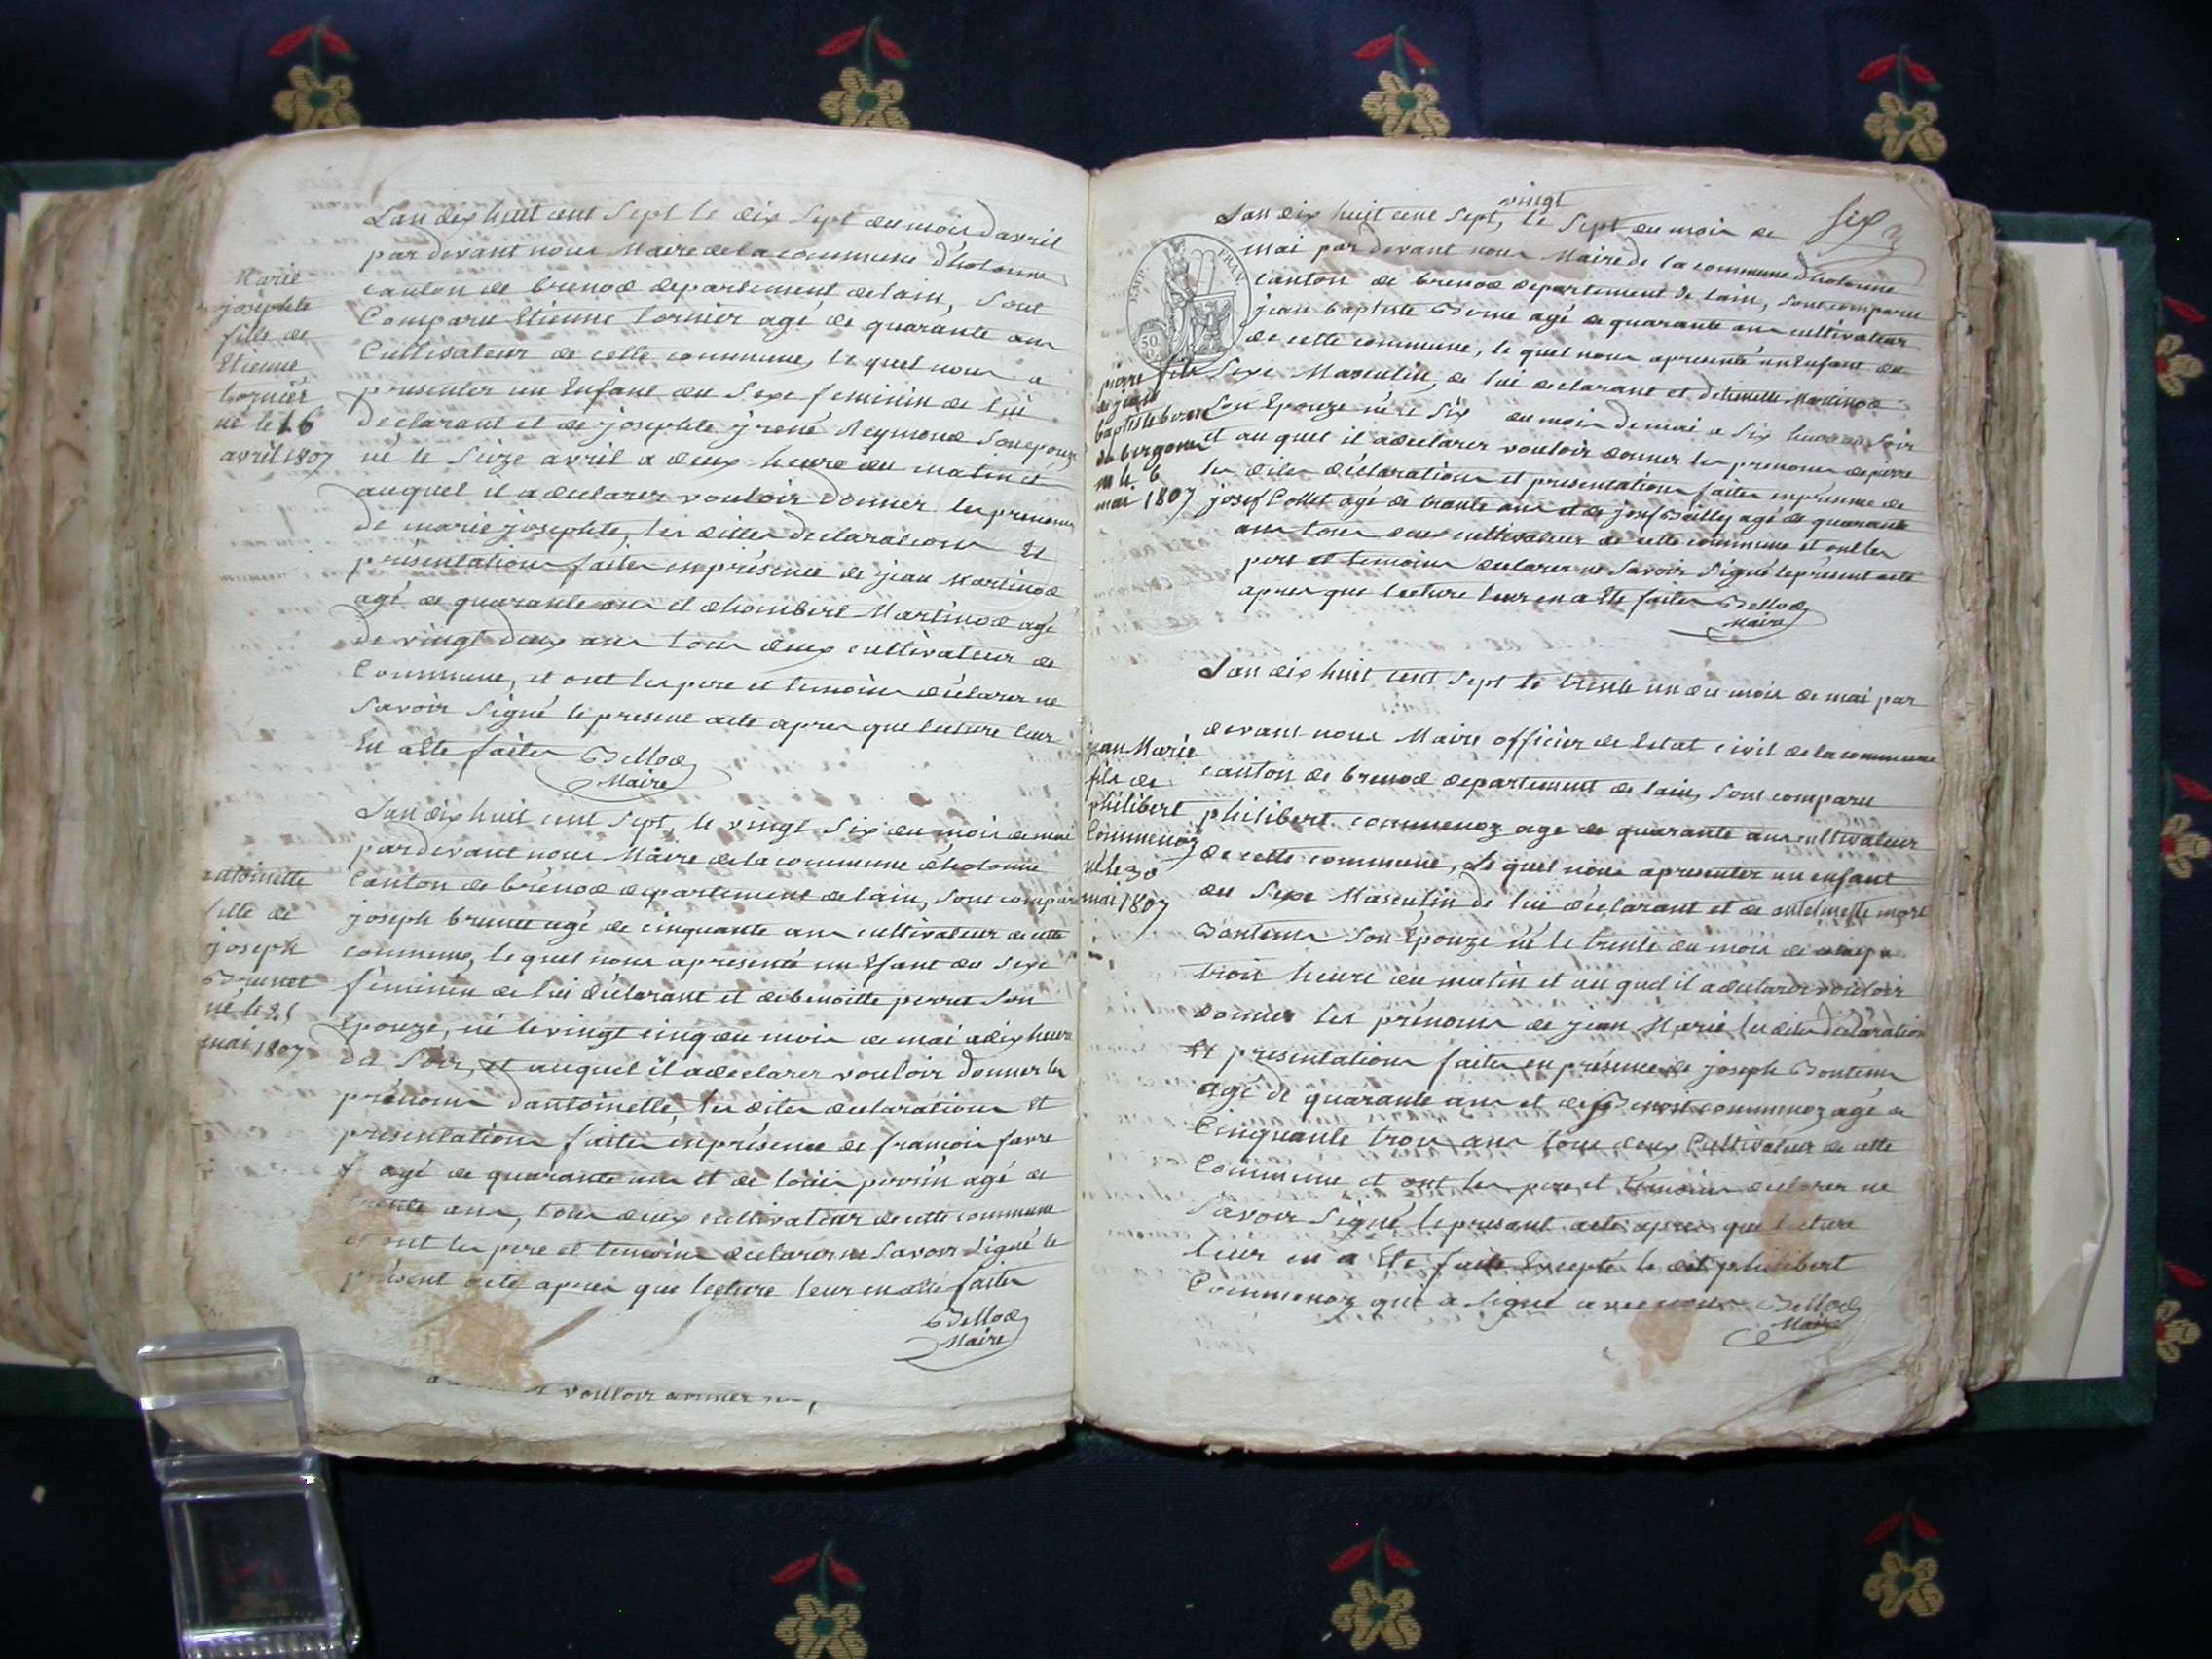 L'an dix huit cent Sept le dix Sept du mois d'avril
par devant nous Maire de la commune d'hotonne
canton de brenod departement de lain, Sont
Comparu Etienne tornier agé de quarante ans
Cultivateur de cette commune, le quel nous a
presenter un Enfant du Sexe feminin de lui
Declarant et de josephte jrené Reymond Son epouze
né le Sieze avril a deux heure du matin et
auquel il a declarer vouloir Donner les prenoms
de marie josephte, les dittes declarations Et
présentations faites en présence de jean Martinod
agé de quarante ans et dhombert Martinod agé
de vingt deux ans tous deux cultivateur de
Commune, et ont les pere et temoins déclarer ne
Savoir Signé le present acte apres que lecture leur
En a Ete faites Bellod
Maire
Marie
josephte
fille de
Etienne
tornier
né le 16
avril 1807
L'an dix huit cent Sept, le vingt Six du mois de mai
par devant nous Maire de la commune d'hotonne
Canton de brénod département de lain, Sont comparu
joseph brunet agé de cinquante ans cultivateur de cette
commune, le quel nous a presenté un Efant du Sexe
féminin de lui déclarant et de benoitte perret Son
Epouze, né le vingt cinq du mois de mai a dix heure
du Soir, et auquel il a declarer vouloir donner les
prénoms d'antoinette, les dites declarations et
presentations faites en présence de francois favre
agé de quarante ans et de loüis perrin agé de
ans, tous deux cultivateur de cette commune
et ont les pere et temoins declarer ne Savoir Signé le
présent acte apres que lecture leur en a été faites
Bellod
Maire
antoinette
fille de
joseph
Brunet
né le 25
mai 1807
vouloir donner
six
vingt
L'an dix huit cent Sept, le Sept du mois de
mai par devant nous Maire de la commune d'hotonne
canton de brenod departement de lain, sont comparu
jean baptiste Borne agé de quarante ans cultivateur
de cette commune, le quel nous a presenté un Enfant du
Sexe Masculin, de lui declarant et Martinod
Son Epouze né le Six du mois de mai a Six heure du Soir
et au quel il a declarer vouloir donner les prenoms de pierre
les dites déclarations et presentations faites en présence de
josef Collet agé de trante ans et de josef Bailly agé de quarante
ans tous deux cultivateur de cette commune et ont les
pere et temoins declarer ne Savoir Signé le présent acte
apres que lecture leur en a Ete faites Bellod
Maire
EMP. FRAN.
50
pierre fils
de jean
baptiste borne
né le 6
mai 1807
L'an dix huit cent Sept le trente un du mois de mai par
devant nous Maire officier de letat civil de la commune
canton de brenod departement de lain, Sont comparu
philibert commenoz age de quarante ans cultivateur
de cette commune, Le quel nous a presenter un enfant
du Sexe Masculin de lui déclarant et de antoinette
Bontems Son Epouze né le trente du mois de
trois heure du matin et au quel il a déclarer vouloir
donner les prénoms de jean Marie les dites déclaration
Et presentations faites en présence de joseph Bontems
agé de quarante ans et de Benoit commenoz agé de
Cinquante trois ans tous deux Cultivateur de cette
Commune et ont les pere et témoins declarer ne
Savoir Signé le présant acte apres que lecture
leur en a Ete faite Excepté le dit philibert
Commenoz qui a Signé avec nous Bellod
Maire
jean Marie
fils de
philibert
Commenoz
né le 30
mai 1807